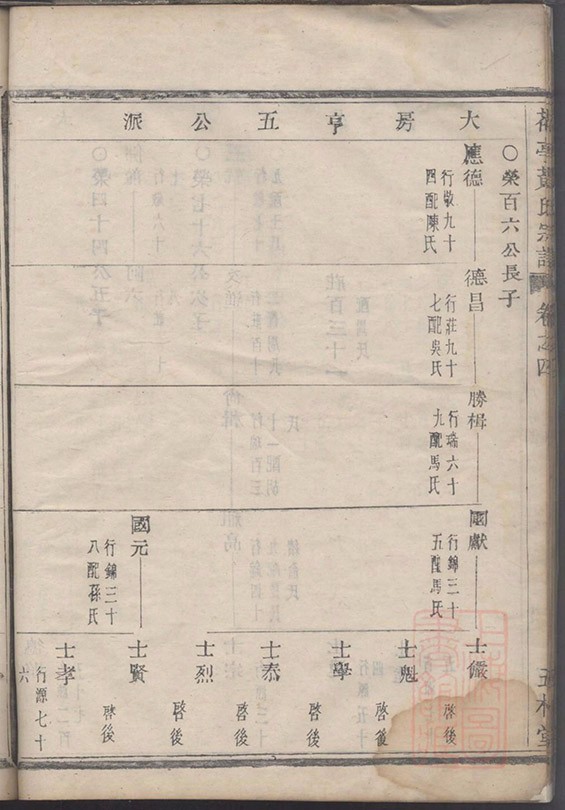 黃氏宗譜 卷之四
大房亨五公派
○榮百六公長子
應德
行敬九十
四配陳氏
德昌
行莊九十
七配吳氏
勝楫
行瑞六十
九配馬氏
國獻
行錦三十
五配馬氏
國元
行錦三十
八配孫氏
士儼
啓後
士魁
啓後
士學
啓後
士泰
啓後
士烈
啓後
士賢
啓後
士孝
行源七十
六